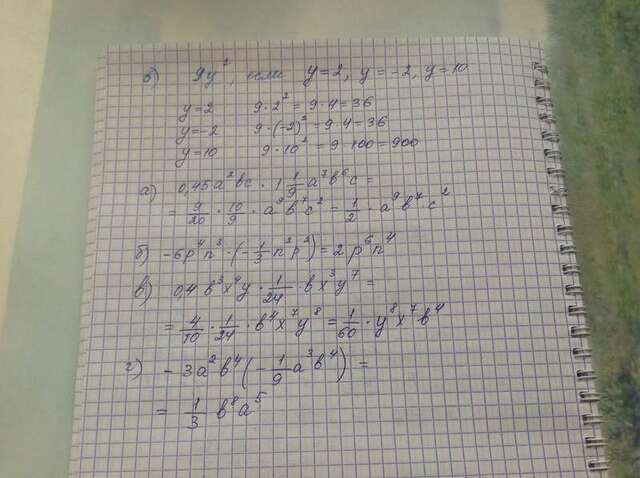 в) 9y², если y=2, y=-2, y=10
y=2 9·2²=9·4=36
y=-2 9·(-2)²=9·4=36
y=10 9·10²=9·100=900
а) 0,45a²bc · 1 1/9 a⁷b⁶c =
= 9/20 · 10/9 · a⁹b⁷c² = 1/2 · a⁹b⁷c²
б) -6p⁴n³·(-1/3 n²p²)=2p⁶n⁴
в) 0,4 b³x⁴y · 1/24 · bx³y⁷ =
= 4/10 · 1/24 · b⁴x⁷y⁸ = 1/60 · y⁸x⁷b⁴
г) -3a²b⁴(-1/9 a³b⁴) =
= 1/3 b⁸a⁵